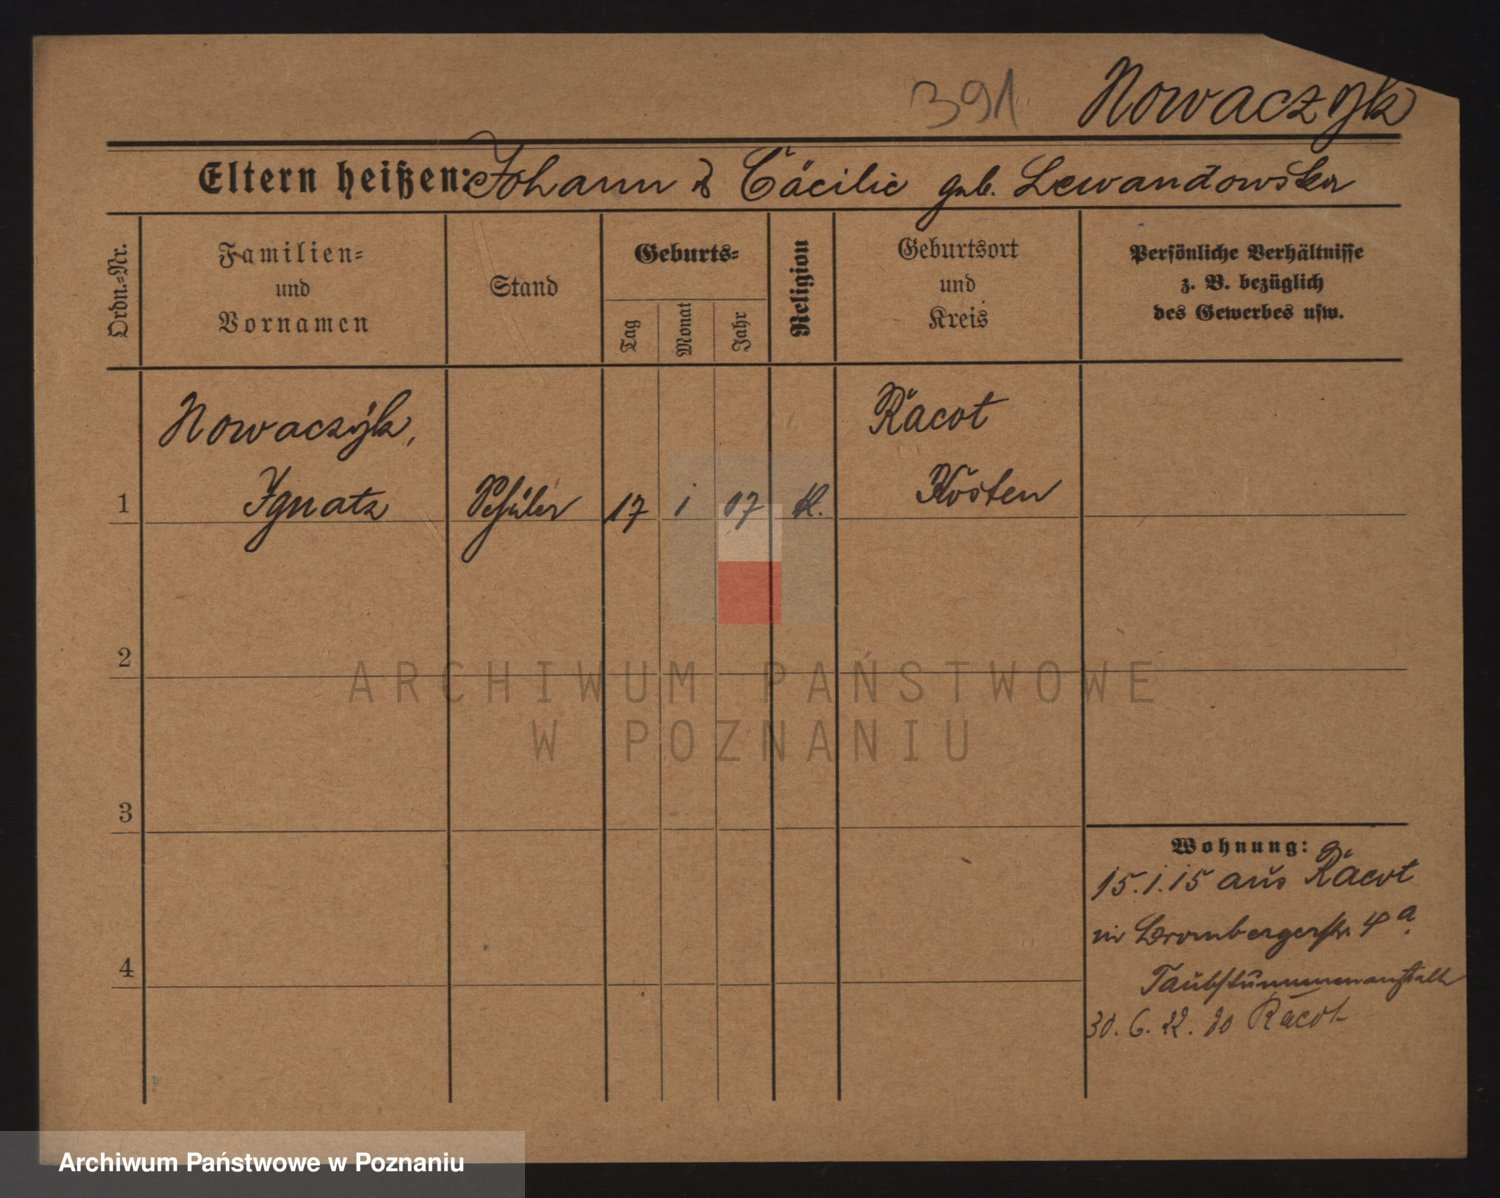 391 Nowaczyk
Eltern heißen: Johann & Cäcilie geb. Lewandowska
Ordn.-Nr.
Familien-
und
Vornamen
Stand
Geburts-
Tag
Monat
Jahr
Religion
Geburtsort
und
Kreis
Persönliche Verhältnisse
z. B. bezüglich
des Gewerbes usw.
Nowaczyk,
Racot
1 Ignatz Schüler 17 1 07 k. Kosten
2
3
4
Wohnung:
15.1.15 aus Racot
in Brombergerstr. 4a.
Taubstummenanstalt
30.6.22. Racot
ARCHIWUM PAŃSTWOWE
W POZNANIU
Archiwum Państwowe w Poznaniu